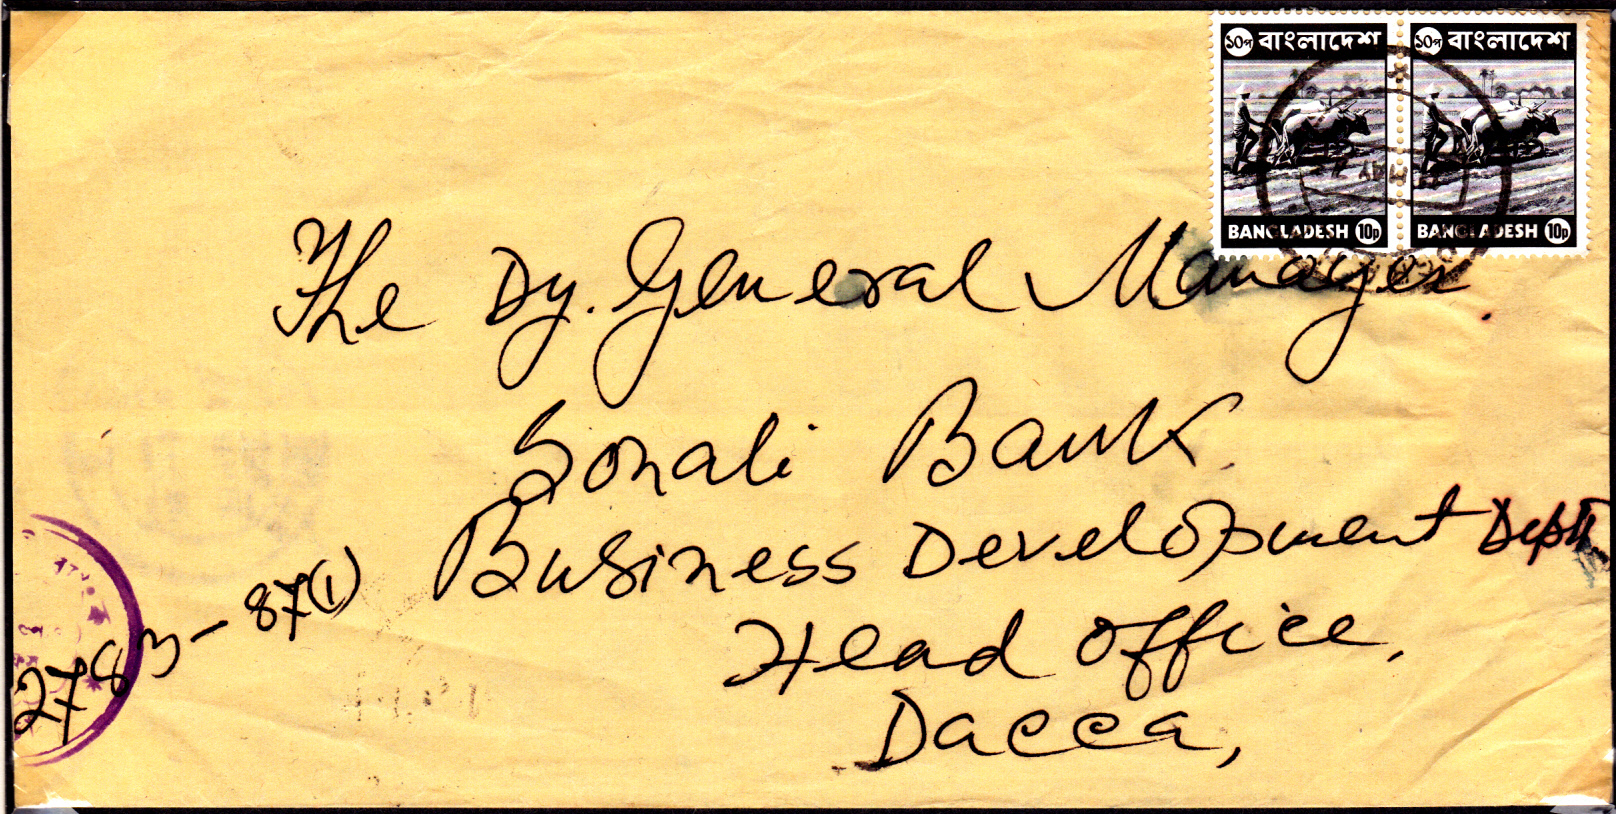 ১০প বাংলাদেশ ১০প বাংলাদেশ
BANGLADESH 10p BANGLADESH 10p
The Dy. General Manager
Sonali Bank
Business Development Deptt
Head Office,
Dacca,
2783-87(1)